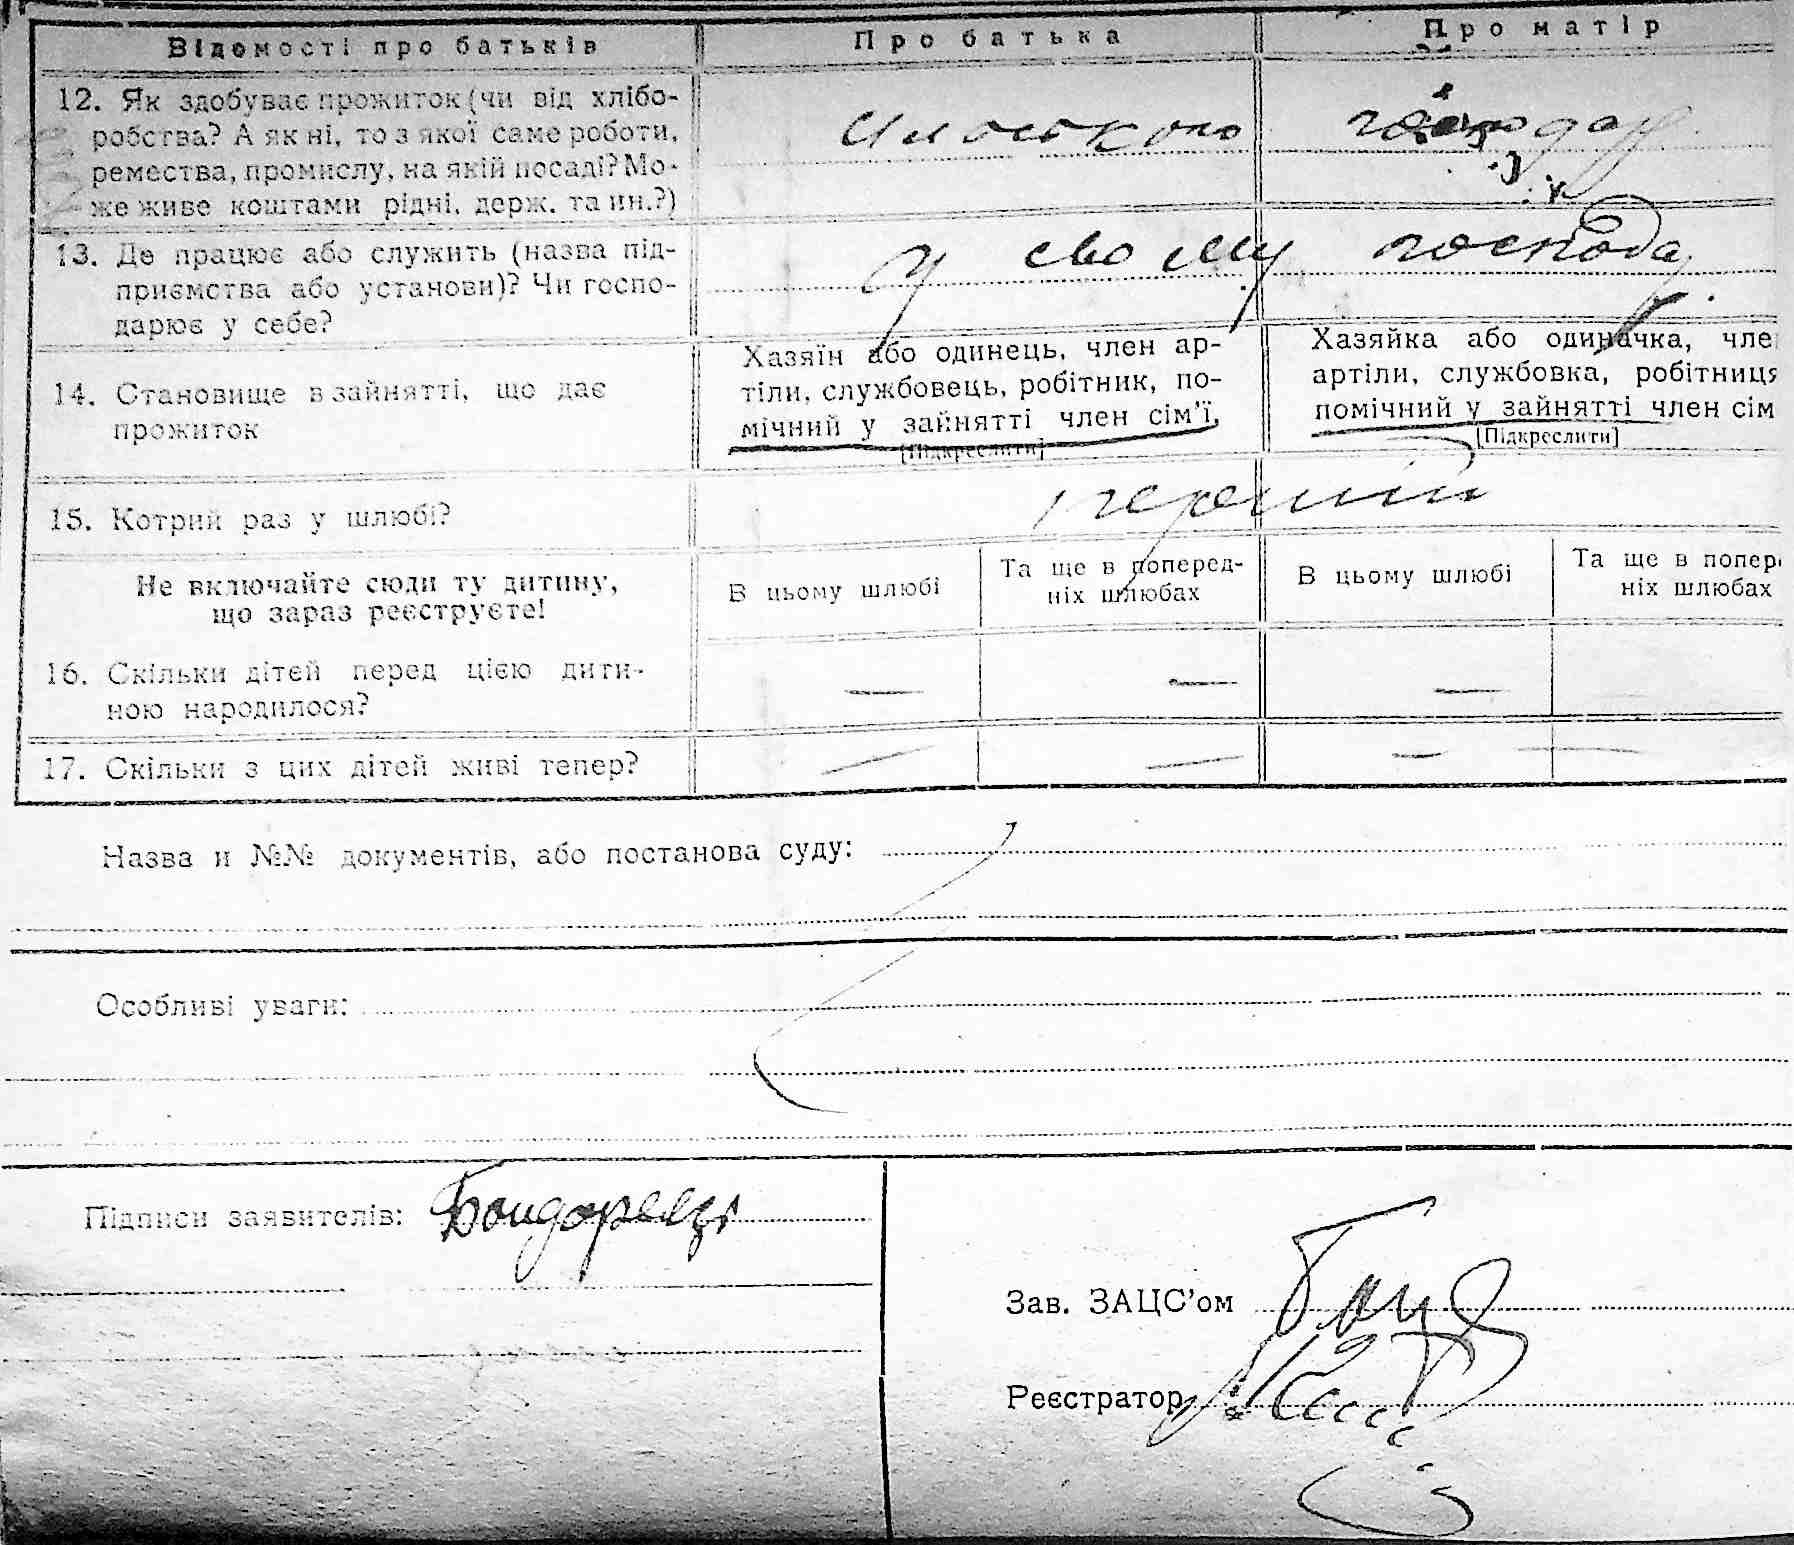 Відомості про батьків
Про батька
Про матір
12. Як здобуває прожиток (чи від хлібо-
робства? А як ні, то з якої саме роботи,
ремества, промислу, на якій посаді? Мо-
же живе коштами рідні, держ. та ин.?)
13. Де працює або служить (назва під-
приємства або установи)? Чи госпо-
дарює у себе?
у свому господар.
14. Становище в зайнятті, що дає
прожиток
Хазяїн або одинець, член ар-
тіли, службовець, робітник, по-
мічний у зайнятті член сім'ї,
[Підкреслити]
Хазяйка або одиначка, чле
артіли, службовка, робітниця
помічний у зайнятті член сім
[Підкреслити]
15. Котрий раз у шлюбі?
перший
Не включайте сюди ту дитину,
що зараз реєструєте!
В цьому шлюбі
Та ще в поперед-
ніх шлюбах
В цьому шлюбі
Та ще в попер
ніх шлюбах
16. Скільки дітей перед цією дити-
ною народилося?
— — —
17. Скільки з цих дітей живі тепер?
— — — —
Назва и №№ документів, або постанова суду:
Особливі уваги:
Підписи заявителів:
Зав. ЗАЦС'ом
Реєстратор